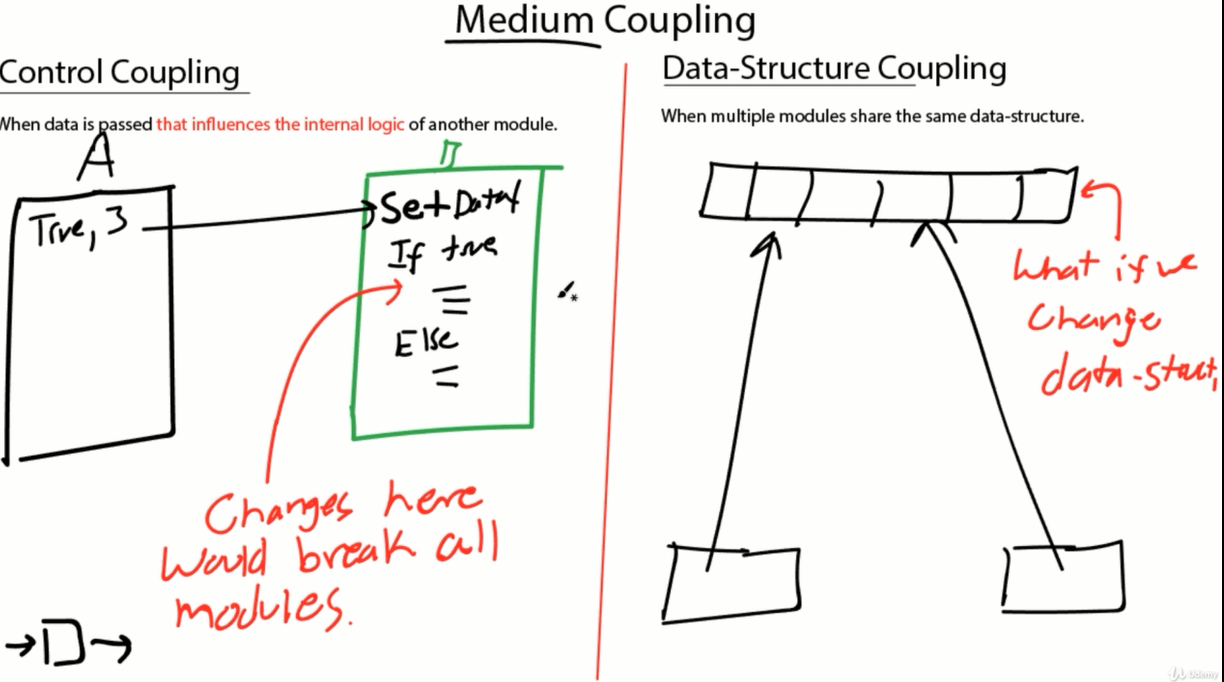 Medium Coupling
Control Coupling
When data is passed that influences the internal logic of another module.
A
True, 3
Set Data
If true
Else
Changes here
would break all
modules.
Data-Structure Coupling
When multiple modules share the same data-structure.
What if we
change
data-struct,
Udemy